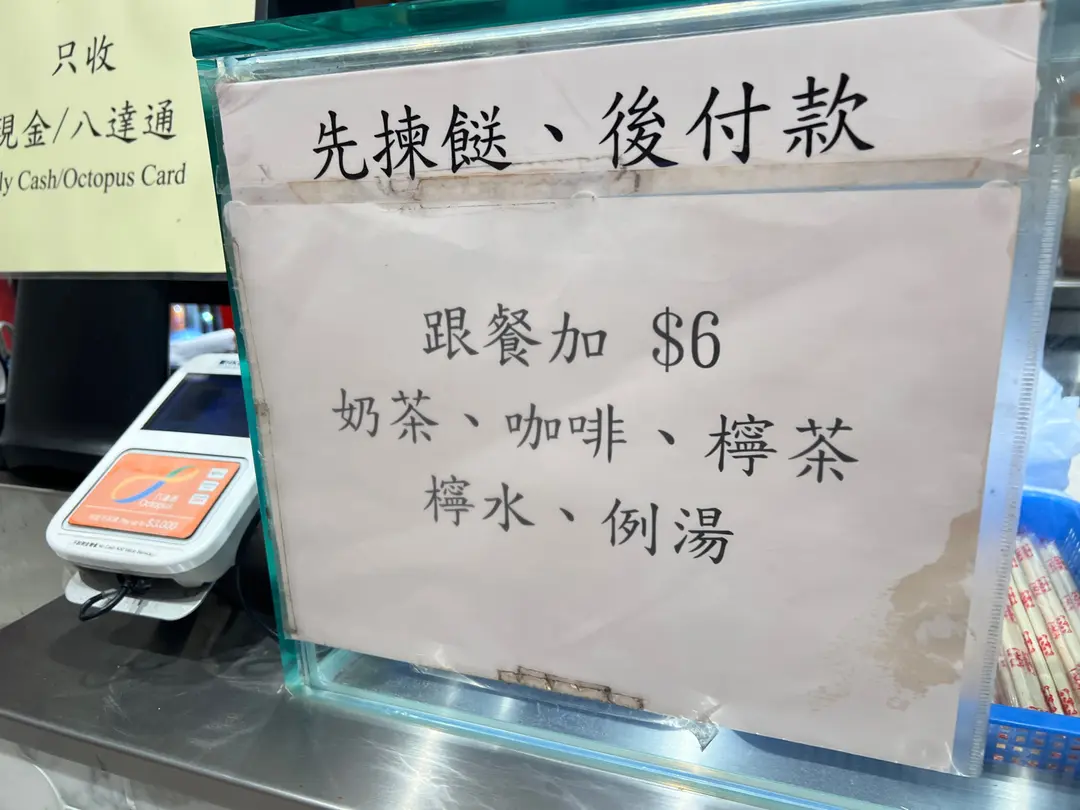 只收
現金/八達通
ly Cash/Octopus Card
先揀餸、後付款
跟餐加 $6
奶茶、咖啡、檸茶
檸水、例湯
八達通
Octopus
$3,000